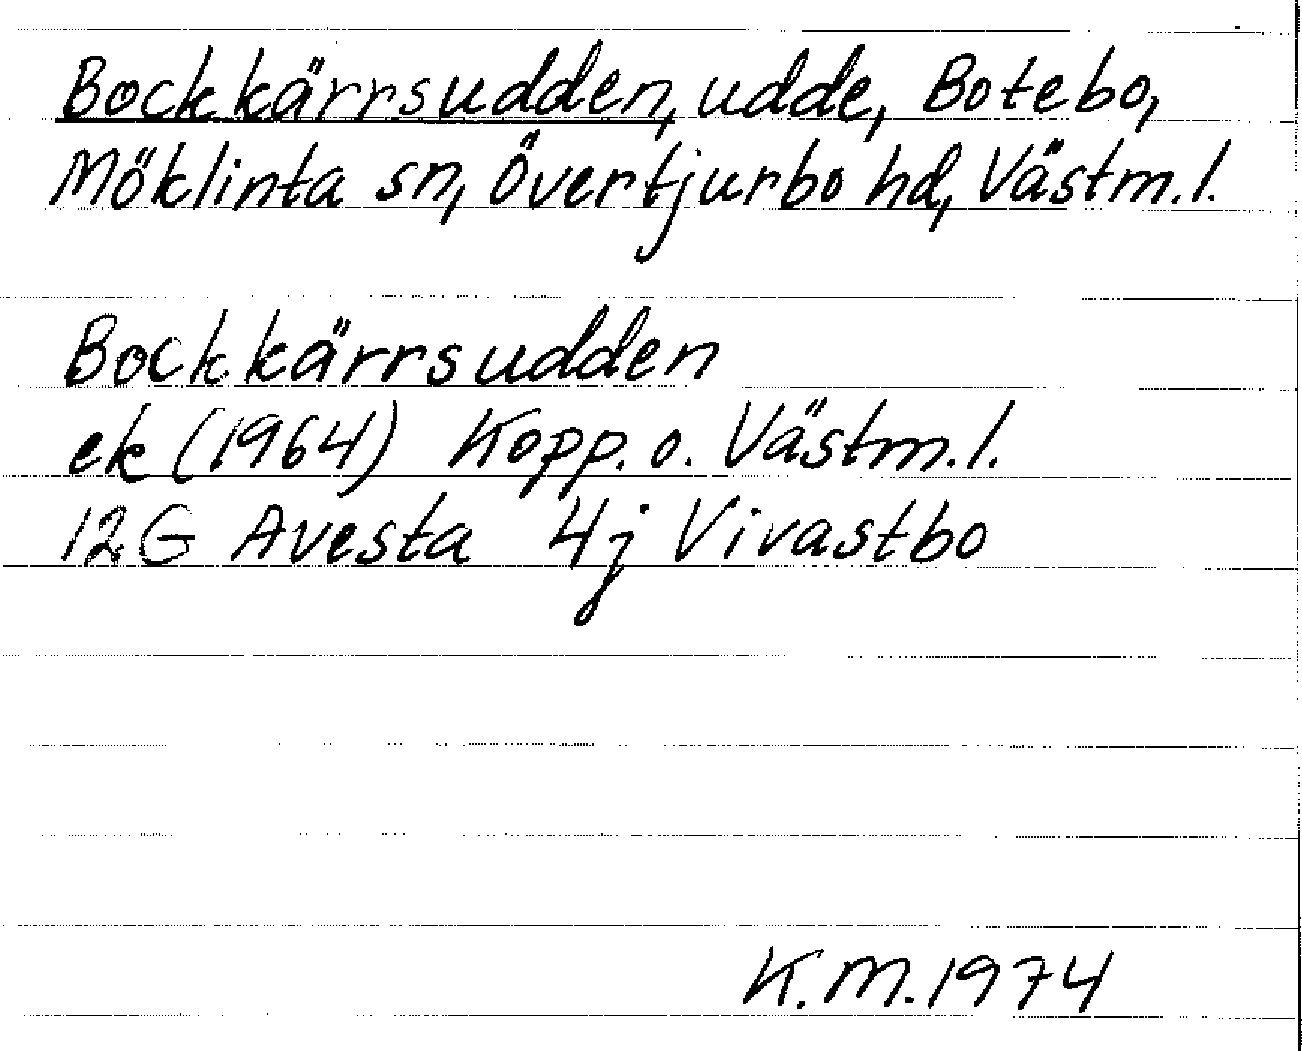 Bockkärrsudden, udde, Botebo,
Möklinta sn, Övertjurbo hd, Västm.l.
Bockkärrsudden
ek (1964) Kopp. o. Västm.l.
12G Avesta 4j Vivastbo
K.M.1974